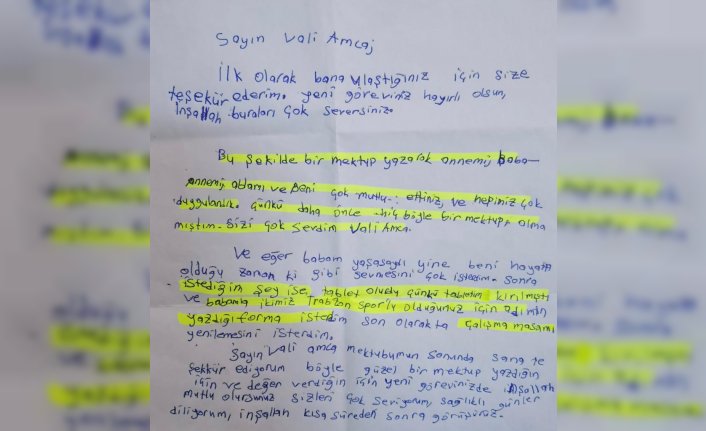 Sayın Vali Amcaj
İlk olarak bana ulaştığınız için size
teşekür ederim. yeni göreviniz hayırlı olsun,
İnşallah buraları çok seversiniz.
Bu şekilde bir mektup yazarak annemi, baba-
annemi, ablamı ve beni çok mutlu ettiniz, ve hepimiz çok
duygulandık. Çünkü daha önce hiç böyle bir mektup, alma
mıştım. Sizi çok Sevdim Vali Amca.
Ve eğer babam yaşasaydı yine beni hayatta
olduğu zaman ki gibi sevmesini çok isterdim. Sonra
istediğim şey ise tablet olurdu çünkü tabletim kırılmıştı
ve babamla ikimiz Trabzon Sporlu olduğumuz için adımın
yazdığı forma isterdim son olarakta çalışma masamı
yenilemesini isterdim.
Sayın Vali amca mektubumun sonunda sana te
şekkür ediyorum böyle güzel bir mektup yazdığın
için ve değer verdiğin için yeni görevinizde inşallah
mutlu olursunuz sizleri çok seviyorum, sağlıklı günler
diliyorum, inşallah kısa süreden sonra görüşürüz.